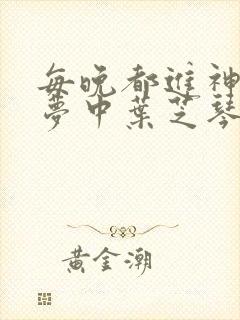 每晚都進神
夢中葉芝琴
黃金潮